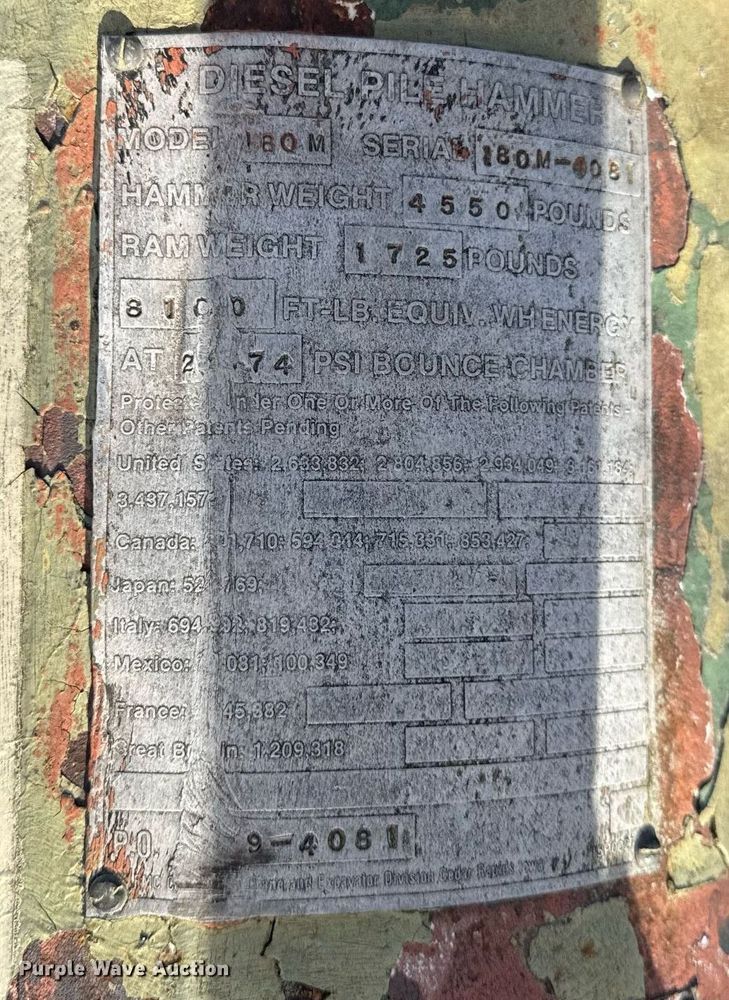 DIESEL PILE HAMMER
MODEL 180M SERIAL 180M-4081
HAMMER WEIGHT 4550 POUNDS
RAM WEIGHT 1725 POUNDS
8100 FT-LB. EQUIV. WH ENERGY
AT 74 PSI BOUNCE CHAMBER
Protected Under One Or More Of The Following Patents-
Other Patents Pending
United States: 2,633,832; 2,804,856; 2,934,049;
3,437,157;
Canada: 715,331; 853,427;
Japan:
Italy: 819,432;
Mexico: 100,349
France:
Great Britain: 1,209,318
P.O. 9-4081
Crane and Excavator Division Cedar Rapids
Purple Wave Auction